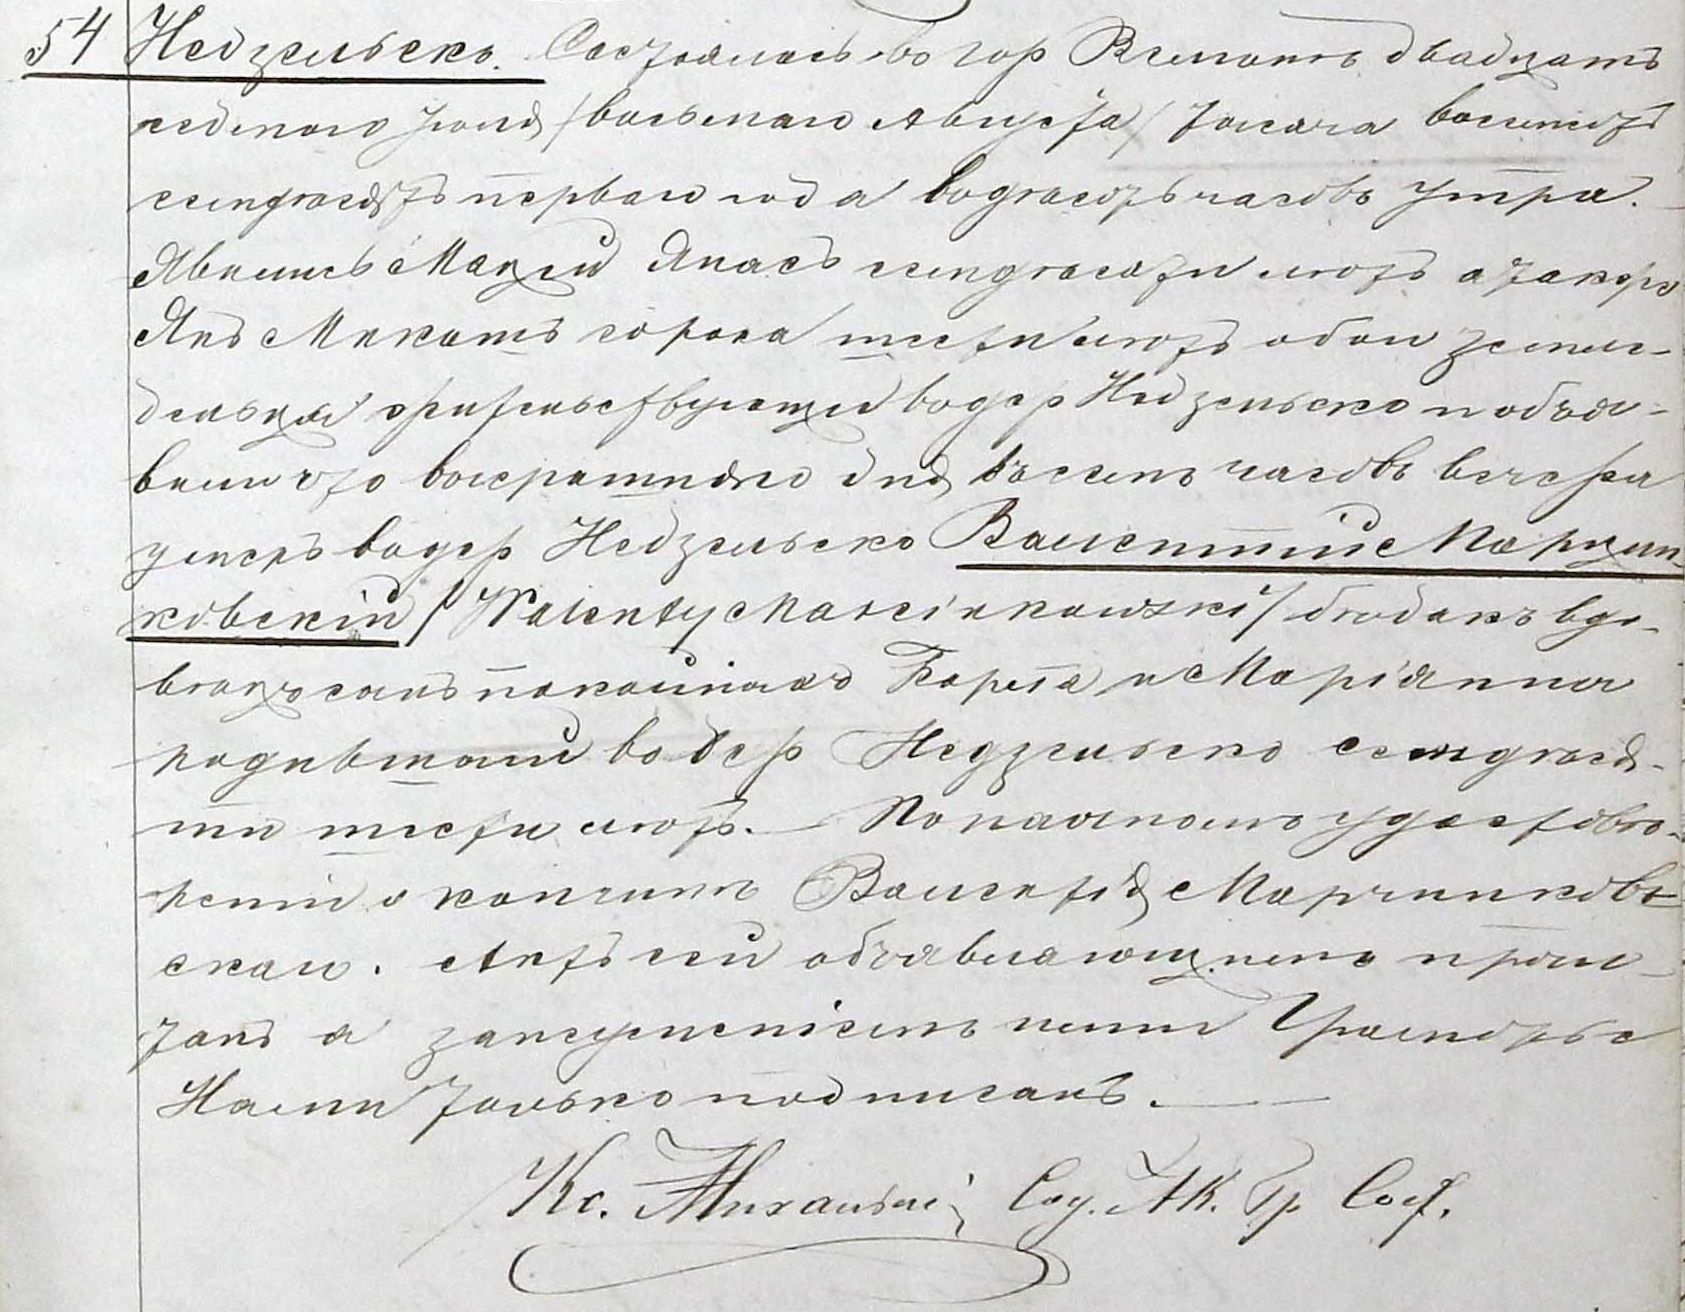 54 Недзельско. Состоялось въ гор Велюнѣ двадцать
седмого Іюля /восьмаго Августа/ тысяча восемсотъ
семдесятъ перваго года въ десять часовъ утра.
Явились Мацей Япасъ семдесяти лѣтъ а также
Янъ Микатъ сорока шести лѣтъ оба земле-
дельцы жительствующіе въ дер Недзельско и объя-
вили что вчерашняго дня въ семь часовъ вечера
умеръ въ дер Недзельско Валентій Марцин-
ковскій /Walenty Marcinkowski/ бѣдакъ вдо-
вецъ сынъ покойныхъ Кароля и Маріянны
родившійся въ дер Недзельско семдеся-
ти шести лѣтъ. — По наличномъ удостовѣ-
реніи о кончинѣ Валентія Марчинковь
скаго. Актъ сей объявляющимъ прочи-
танъ а за неумѣніемъ ними Грамотѣ
Нами только подписанъ. —
Кс. Михальскі Сод. Ак. Гр. Сост.